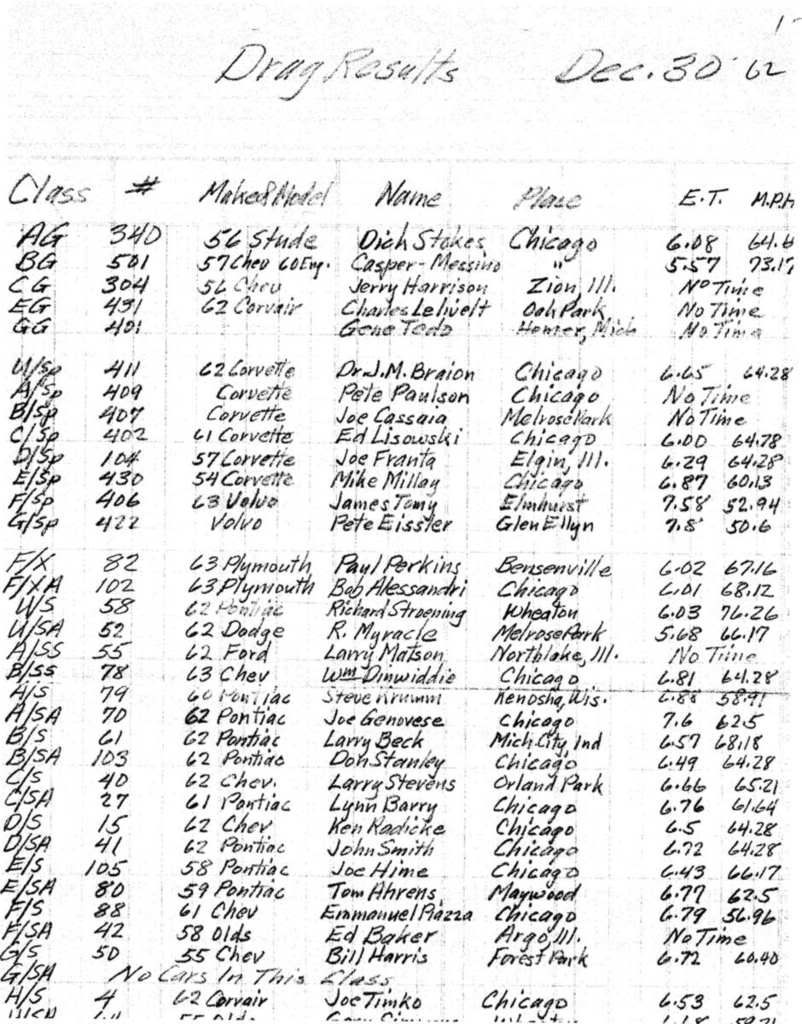 Drag Results Dec. 30 '62
Class # Make & Model Name Place E.T. M.P.H
AG 340 56 Stude Dich Stokes Chicago 6.08 64.6
BG 501 57 Chev 60 Eng. Casper-Messino " 5.57 73.17
CG 304 56 Chev Jerry Harrison Zion, Ill. No Time
EG 431 62 Corvair Charles Lelivelt Oak Park No Time
GG 401 Gene Mich No Time
U/Sp 411 62 Corvette Dr. J.M. Braion Chicago 6.65 64.28
A/Sp 409 Corvette Pete Paulson Chicago No Time
B/Sp 407 Corvette Joe Cassaia Melrose Park No Time
C/Sp 402 61 Corvette Ed Lisowski Chicago 6.00 64.78
D/Sp 104 57 Corvette Joe Franta Elgin, Ill. 6.29 64.28
E/Sp 430 54 Corvette Mike Millay Chicago 6.87 60.13
F/Sp 406 63 Volvo James Tomy Elmhurst 7.58 52.94
G/Sp 422 Volvo Pete Eissler Glen Ellyn 7.8 50.6
F/X 82 63 Plymouth Paul Perkins Bensenville 6.02 67.16
F/XA 102 63 Plymouth Bob Alessandri Chicago 6.01 68.12
U/S 58 62 Pontiac Richard Stroening Wheaton 6.03 76.26
U/SA 52 62 Dodge R. Myracle Melrose Park 5.68 66.17
A/SS 55 62 Ford Larry Matson Northlake, Ill. No Time
B/SS 78 63 Chev Wm Dinwiddie Chicago 6.81 64.28
A/S 79 60 Pontiac Steve Krumm Kenosha, Wis. 6.88 58.91
A/SA 70 62 Pontiac Joe Genovese Chicago 7.6 62.5
B/S 61 62 Pontiac Larry Beck Mich City, Ind 6.57 68.18
B/SA 103 62 Pontiac Don Stanley Chicago 6.49 64.28
C/S 40 62 Chev. Larry Stevens Orland Park 6.66 65.21
C/SA 27 61 Pontiac Lynn Barry Chicago 6.76 61.64
D/S 15 62 Chev Ken Radicke Chicago 6.5 64.28
D/SA 41 62 Pontiac John Smith Chicago 6.72 64.28
E/S 105 58 Pontiac Joe Hime Chicago 6.43 66.17
E/SA 80 59 Pontiac Tom Ahrens Maywood 6.77 62.5
F/S 88 61 Chev Emmanuel Piazza Chicago 6.79 56.96
F/SA 42 58 Olds Ed Baker Argo, Ill. No Time
G/S 50 55 Chev Bill Harris Forest Park 6.72 60.40
G/SA No Cars In This Class
H/S 4 62 Corvair Joe Timko Chicago 6.53 62.5